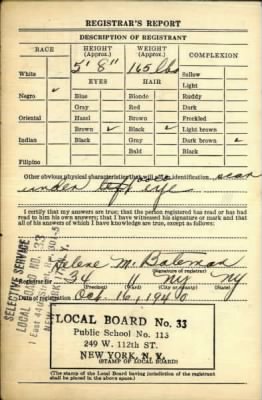 REGISTRAR'S REPORT
DESCRIPTION OF REGISTRANT
RACE HEIGHT (Approx.) WEIGHT (Approx.) COMPLEXION
5' 8" 165 lbs
White Sallow
EYES HAIR Light
Negro ✓ Blue Blonde Ruddy
Gray Red Dark
Oriental Hazel Brown Freckled
Brown ✓ Black ✓ Light brown
Indian Black Gray Dark brown ✓
Bald Black
Filipino
Other obvious physical characteristics that will aid in identification scar
under left eye
I certify that my answers are true; that the person registered has read or has had
read to him his own answers; that I have witnessed his signature or mark and that
all of his answers of which I have knowledge are true, except as follows:
Helene M. Bateman
(Signature of registrar)
Registrar for 34 11 NY NY
(Precinct) (Ward) (City or county) (State)
Date of registration Oct. 16, 1940
SELECTIVE SERVICE
LOCAL BOARD NO. 33
LOCAL BOARD No. 33
Public School No. 113
249 W. 112th ST.
NEW YORK, N. Y.
(STAMP OF LOCAL BOARD)
(The stamp of the Local Board having jurisdiction of the registrant
shall be placed in the above space.)